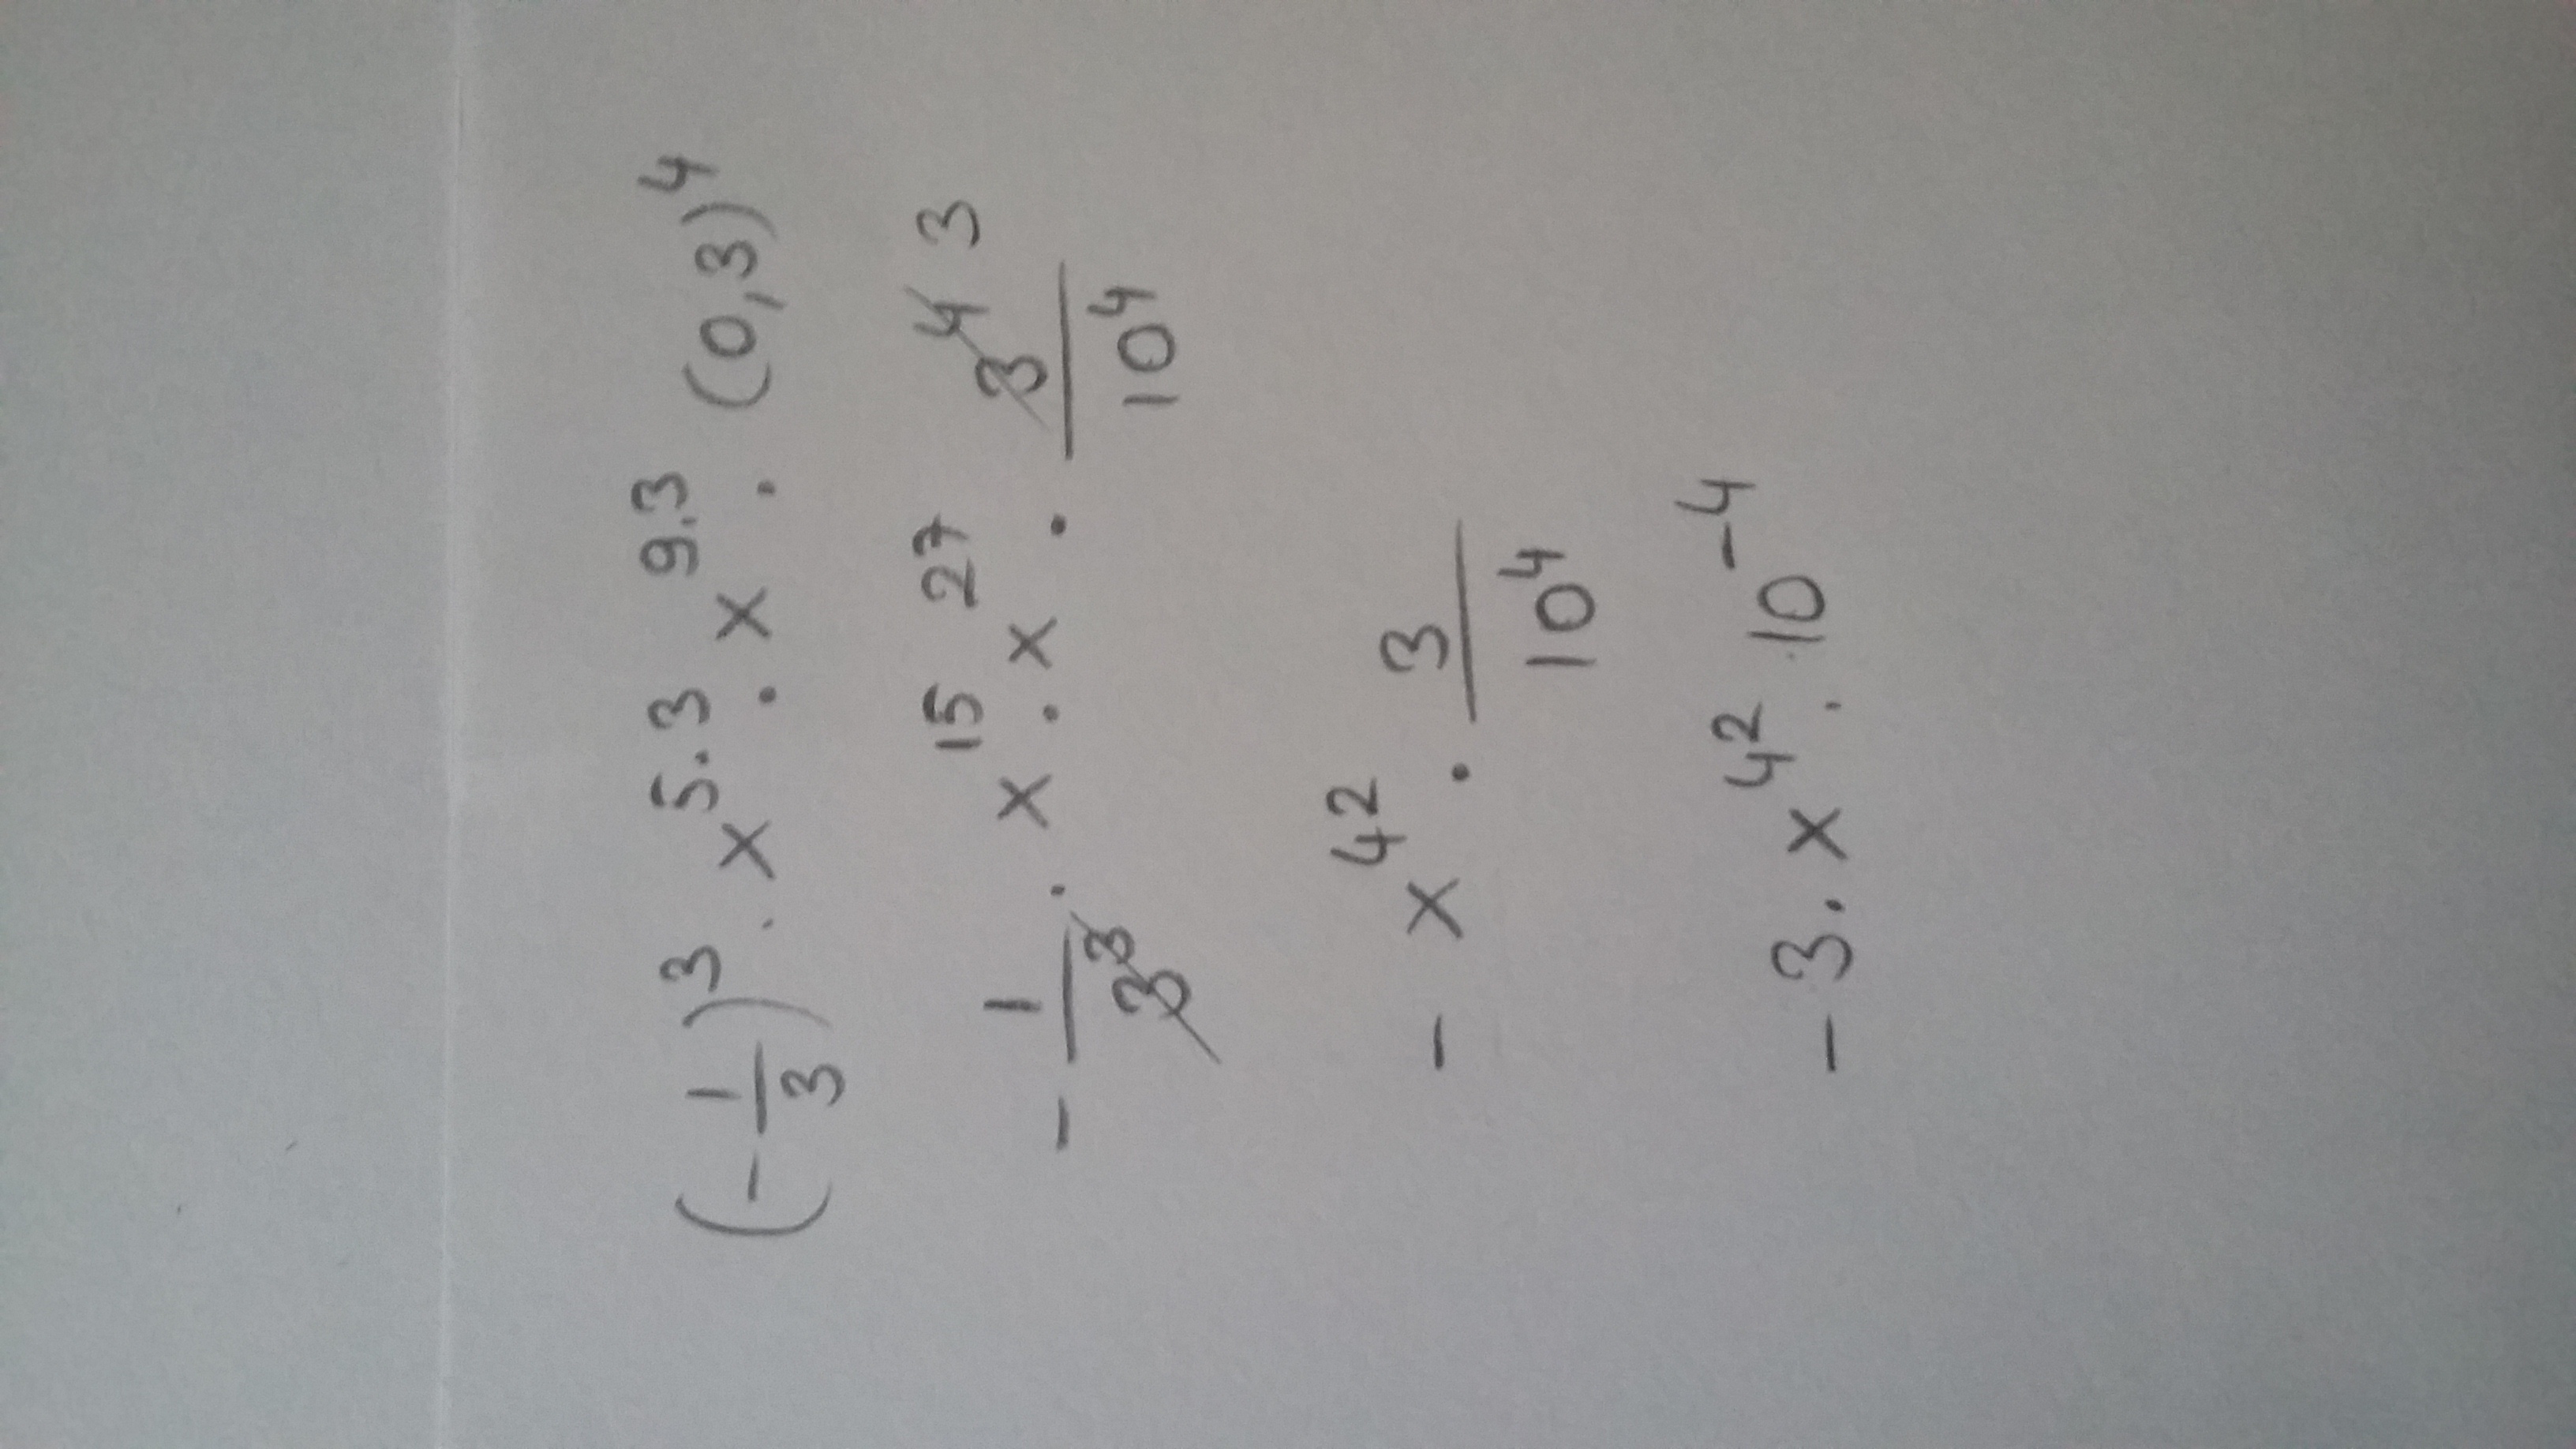 (-1/3)³ . x⁵·³ . x⁹·³ . (0,3)⁴
- 1/3³ . x¹⁵ . x²⁷ . 3⁴ 3/10⁴
- x⁴² . 3/10⁴
-3 . x⁴² . 10⁻⁴